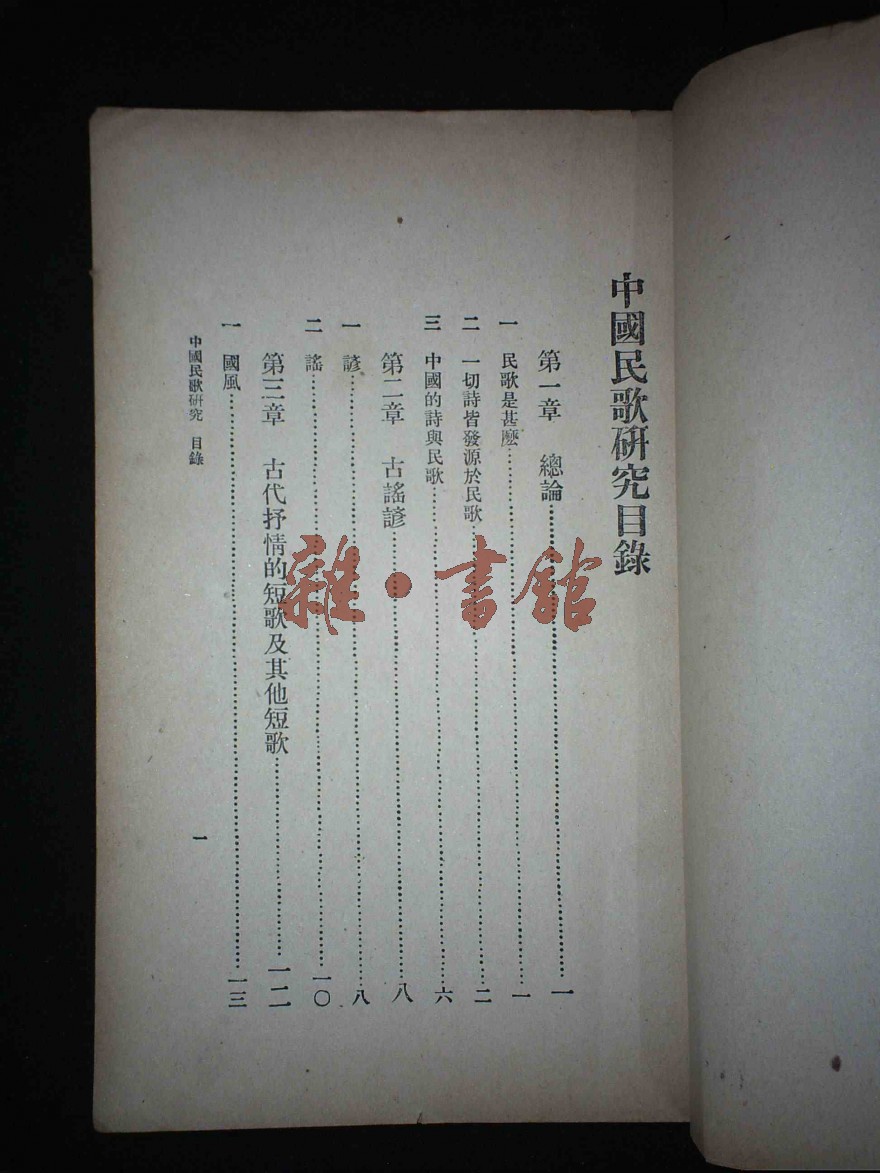 中國民歌研究目錄
第一章　總論…………一
一　民歌是甚麼…………一
二　一切詩皆發源於民歌…………二
三　中國的詩與民歌…………六
第二章　古謠諺…………八
一　諺…………八
二　謠…………一〇
第三章　古代抒情的短歌及其他短歌…………一二
一　國風…………一三
中國民歌研究　目錄
一
雜·書館